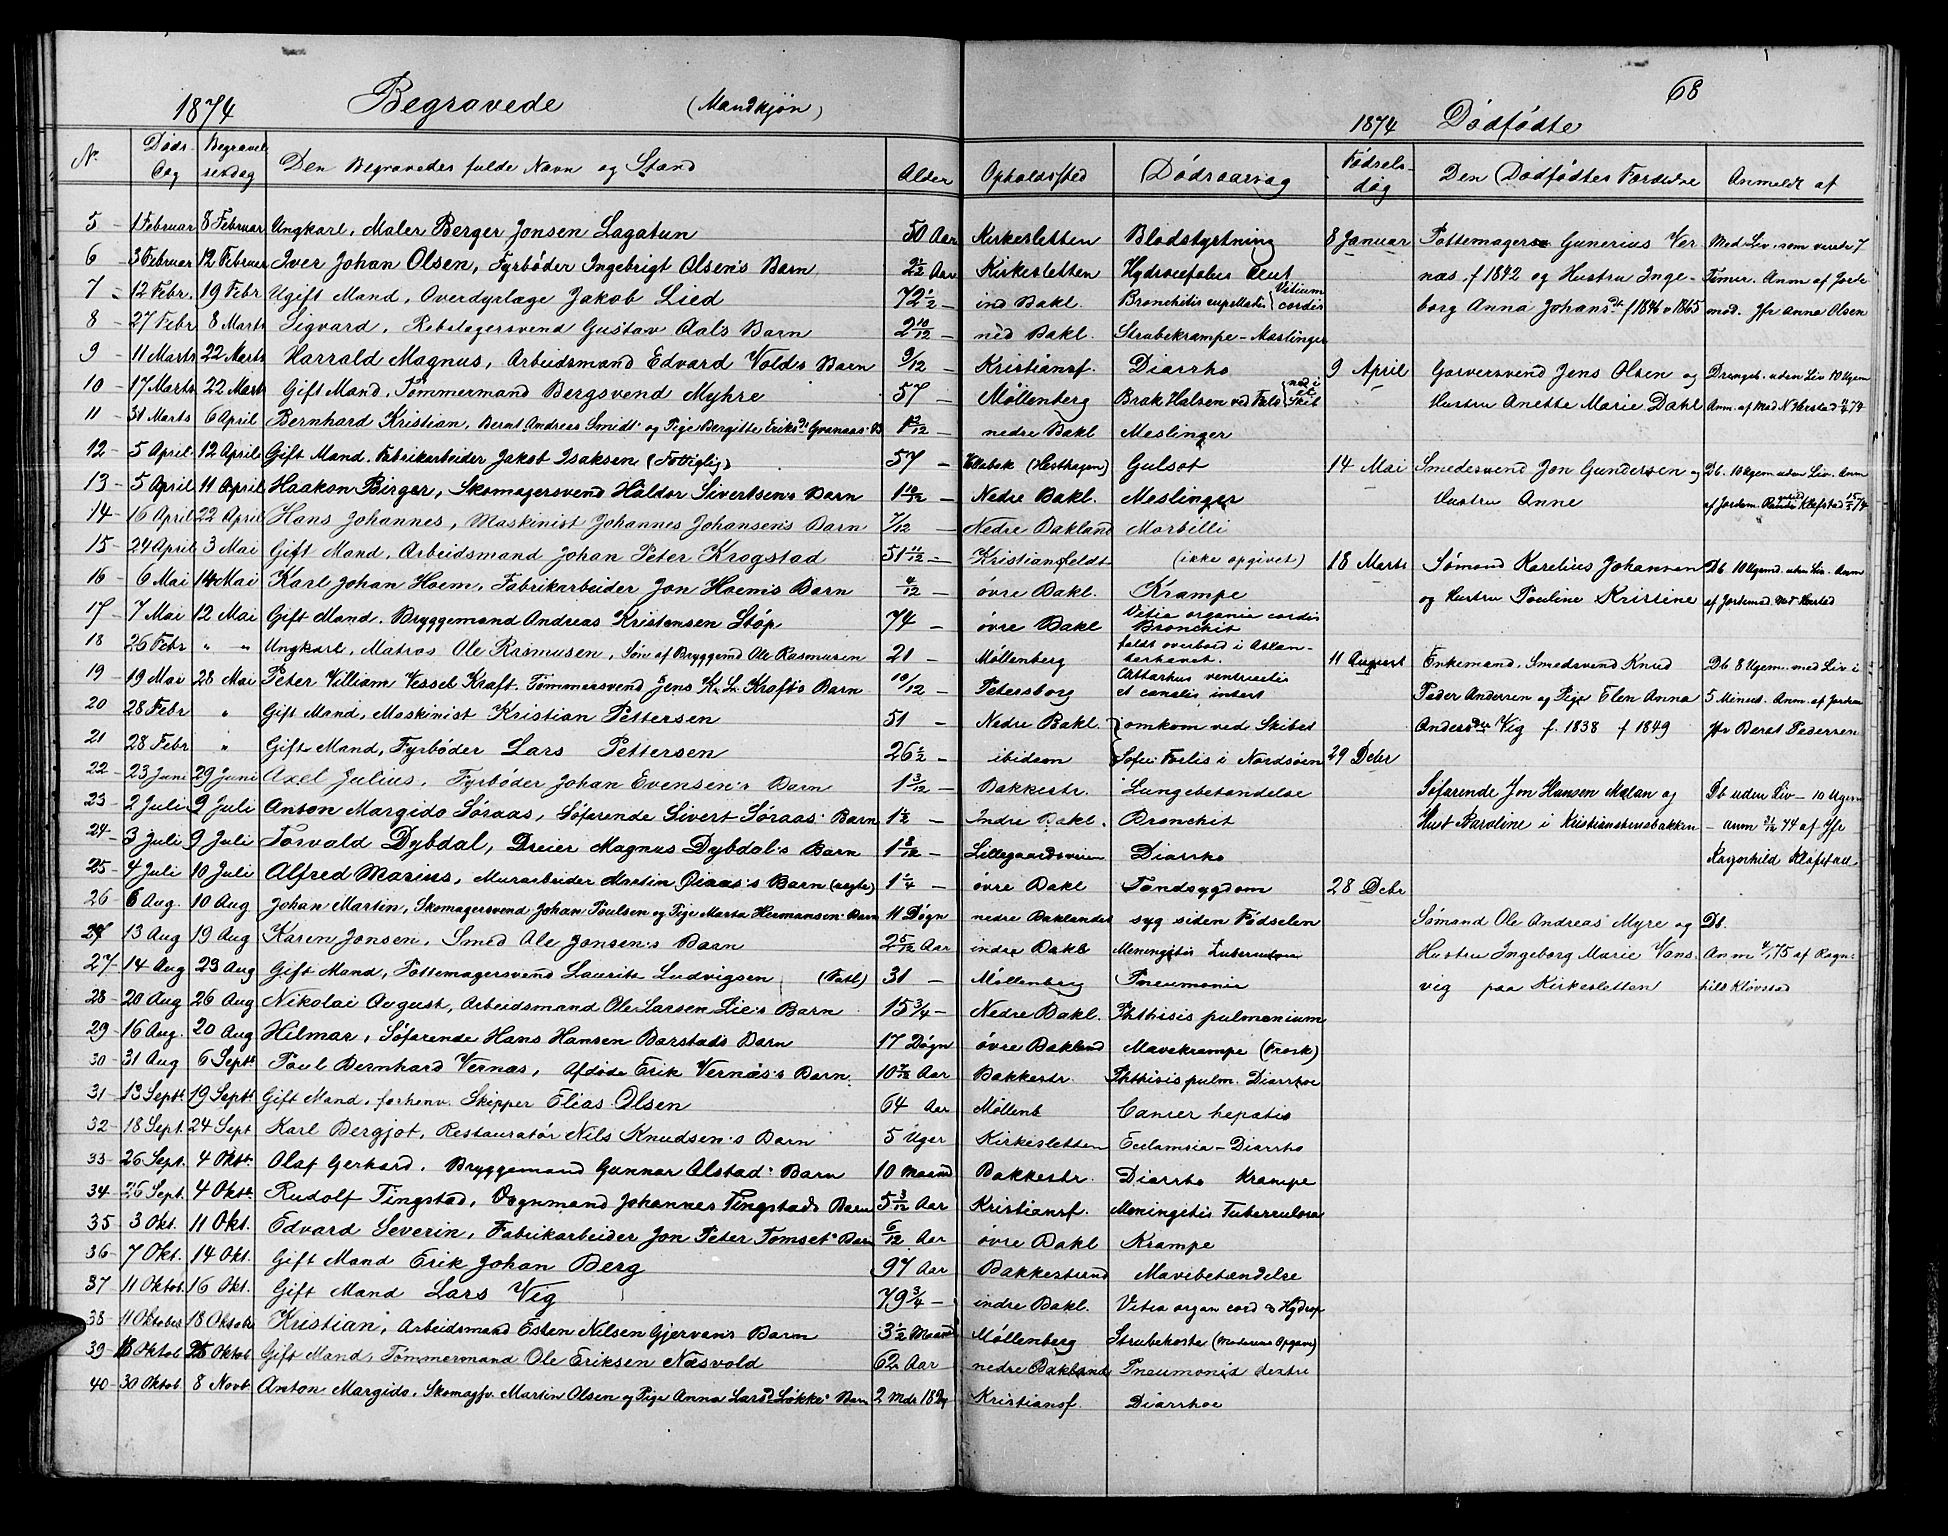 68
1874 Begravede (Mandkjøn) 1874 Dødfødte
No Døds-Dag Begravelsesdag Den Begravedes fulde Navn og Stand Alder Opholdssted Dødsaarsag Fødselsdag Den Dødfødtes Forældre Anmeldt af
5 - 1 Februar 8 Februar Ungkarl, Maler Berger Jonsen Lagatun 50 Aar Kirkesletten Blodstyrtning
6 - 3 Februar 12 Februar Iver Johan Olsen, Fyrbøder Ingebrigt Olsen's Barn Aar Kirkesletten Hydrocefalus acut
7 - 12 Febr. 19 Febr Ugift Mand, Overdyrlæge Jakob Lied 72 1/2 - ind Bakl. Bronchitis Vitium cordis
8 - 27 Febr 8 Marts Sigvard, Rebslagersvend Gustav Aals Barn 2 10/12 - ned Bakl. Strubekrampe - Meslinger
9 - 11 Marts 22 Marts Harrald Magnus, Arbeidsmand Edvard Volds Barn 9/12 - Kristiansf. Diarrho
10 - 17 Marts 22 Marts Gift Mand. Tømmermand Bergsvend Myhre 57 - Møllenberg Brak Halsen ved Fald ned i et Skib
11 - 31 Marts 6 April Bernhard Kristian, Bernt Andreas Smidt og Pige Bergitte Eriksdt Granaas B - nedre Bakl Meslinger
12 - 5 April 12 April Gift Mand. Fabrikarbeider Jakob Isaksen (Fattiglig) 57 - (Hesthagen) Gulsot
13 - 5 April 11 April Haakon Birger, Skomagersvend Haldor Sivertsen's Barn - Nedre Bakl. Meslinger
14 - 16 April 22 April Hans Johannes, Maskinist Johannes Johansen's Barn 7/12 - Nedre Bakland Morbilli
15 - 24 April 3 Mai Gift Mand, Arbeidsmand Johan Peter Krogstad 51 11/12 - Kristiansfeldt (ikke opgivet)
16 - 6 Mai 14 Mai Karl Johan Hoem, Fabrikarbeider Jon Hoem's Barn 4/12 - øvre Bakl. Krampe
17 - 7 Mai 12 Mai Gift Mand. Bryggemand Andreas Kristensen Støp 74 - øvre Bakl Vitia organia cordis Bronchit
18 26 Febr " " Ungkarl, Matros Ole Rasmusen, Søn af Bryggemd Ole Rasmusen 21 - Møllenberg faldt overbord i Atlanterhavet.
19 - 19 Mai 28 Mai Peter William Vessel Kraft. Tømmersvend Jens K. L. Kraft's Barn 10/12 - Petersborg Cattarhus ventriculis et canalis intest
20 28 Febr " Gift Mand, Maskinist Kristian Pettersen 51 - Nedre Bakl. omkom ved Skibet
21 28 Febr " Gift Mand, Fyrbøder Lars Pettersen 26 1/2 - ibidem Sofie Forlis i Nordsøen
22 - 23 Juni 29 Juni Axel Julius, Fyrbøder Johan Evensen's Barn 1 3/12 - Bakkestr. Lungebetændelse
23 - 2 Juli 9 Juli Anton Margido Søraas, Søfarende Sivert Søraas' Barn 1 1/2 - Indre Bakl. Bronchit
24 - 3 Juli 9 Juli Torvald Dybdal, Dreier Magnus Dybdal's Barn 1 8/12 - Lillegaardsveien Diarrho
25 - 4 Juli 10 Juli Alfred Marius, Murarbeider Martin Barn (ægte) 1 1/4 - øvre Bakl Tandsygdom
26 - 6 Aug. 10 Aug Johan Martin, Skomagersvend Johan Poulsen og Pige Marta Hermansen Barn 11 Døgn nedre Baklandet syg siden Fødselen
27 - 13 Aug 19 Aug Karen Jonsen, Smed Ole Jonsen's Barn 2 5/12 Aar indre Bakl Meningitis Tuberculosa
27 - 14 Aug 23 Aug Gift Mand, Pottemagersvend Laurits Ludvigsen (Fatl) 31 - Møllenberg Pneumonie
28 - 20 Aug 26 Aug Nikolai August, Arbeidsmand Ole Larsen Lie's Barn 15 3/4 - Nedre Bakl. Phthisis pulmonium
29 - 16 Aug. 20 Aug Hilmar, Søfarende Hans Hansen Barstads Barn 17 Døgn øvre Bakland Mavekrampe (Trosk)
30 - 31 Aug 6 Septr Poul Bernhard Vernæs, Afdøde Erik Vernæs's Barn. Aar Bakkestr. Phthisis pulm. Diarrhoe
31 - 13 Septr 19 Septr Gift Mand, forhenv. Skipper Elias Olsen 64 Aar Møllenb Cancer hepatis
32 - 18 Sept. 24 Sept Karl Bergjot, Restauratør Nils Knudsen's Barn 5 Uger Kirkesletten Eclamsia - Diarrho
33 - 26 Sept. 4 Oktr. Olaf Gerhard. Bryggemand Gunnar Alstad's Barn 10 Maand Bakkestr. Diarrho Krampe
34 - 26 Sept. 4 Oktr. Rudolf Tingstad, Vognmand Johannes Tingstads Barn 5 3/12 Aar Kristiansf. Meningitis Tuberculosa
35 - 3 Okt. 11 Okt. Edvard Severin, Fabrikarbeider Jon Peter Tomset's Barn 6/12 Aar øvre Bakl Krampe
36 - 7 Okt. 14 Okt. Gift Mand Erik Johan Berg 97 Aar Bakkestrand Mavibetændelse
37 - 11 Oktob. 16 Okt. Gift Mand Lars Vig 79 3/4 - indre Bakl. Vitia organ cord & Hydrop
38 - 11 Oktober 18 Oktober Kristian, Arbeidsmand Esten Nilsen Gjervan's Barn 3 1/2 Maand Møllenberg Strubehoste (Moderens Opgave)
39 - 18 Oktob 25 Oktob Gift Mand, Tømmermand Ole Eriksen Næsvold 62 Aar nedre Bakland Pneumonia dextre
40 - 30 Oktob. 8 Novb. Anton Margido, Skomagsv. Martin Olsen og Pige Anna Larsdt Løkke's Barn 2 Mdr 18 Dg Kristiansf. Diarrhoe
8 Januar Pottemager Gunerius Vernæs f 1842 og Hustru Ingeborg Anna Johansdt f 1846 Med Liv, som varete 7 Timer. Anm af Jordemod. Jfr Anna Olsen
9 April Garversvend Jens Olsen og Hustru Anette Marie Dahl Drengeb. uden Liv 10 Ugem Anm. af Mad N Harstad
14 Mai Smedesvend Jon Gundersen og Hustru Anne Db. 10 Ugem uden Liv. Anm af Jordem. Klefstad
18 Marts Sømand Karelius Johannsen og Hustru Pouline Kristine Db 10 Ugem. uden Liv. Anm af Jordemod. Mad Harstad
11 August Enkemand, Smedsvend Knud Peder Andersen og Pige Elen Anna Andersdtr Vig f. 1838 f 1849 Db 8 Ugem. med Liv i 5 Minut. Anm. af Jordem Jfr Beret Pedersen
29 Decbr Søfarende Jon Hansen Malan og Hust Karoline i Kristianstensbakken Db uden Liv - 10 Ugem - anm 74 af Jfr Ragnhild Kløfstad
28 Debr Sømand Ole Andreas Myre og Hustru Ingeborg Marie Vansvig paa Kirkesletten Db. Anm 75 af Ragnhild Kløvstad